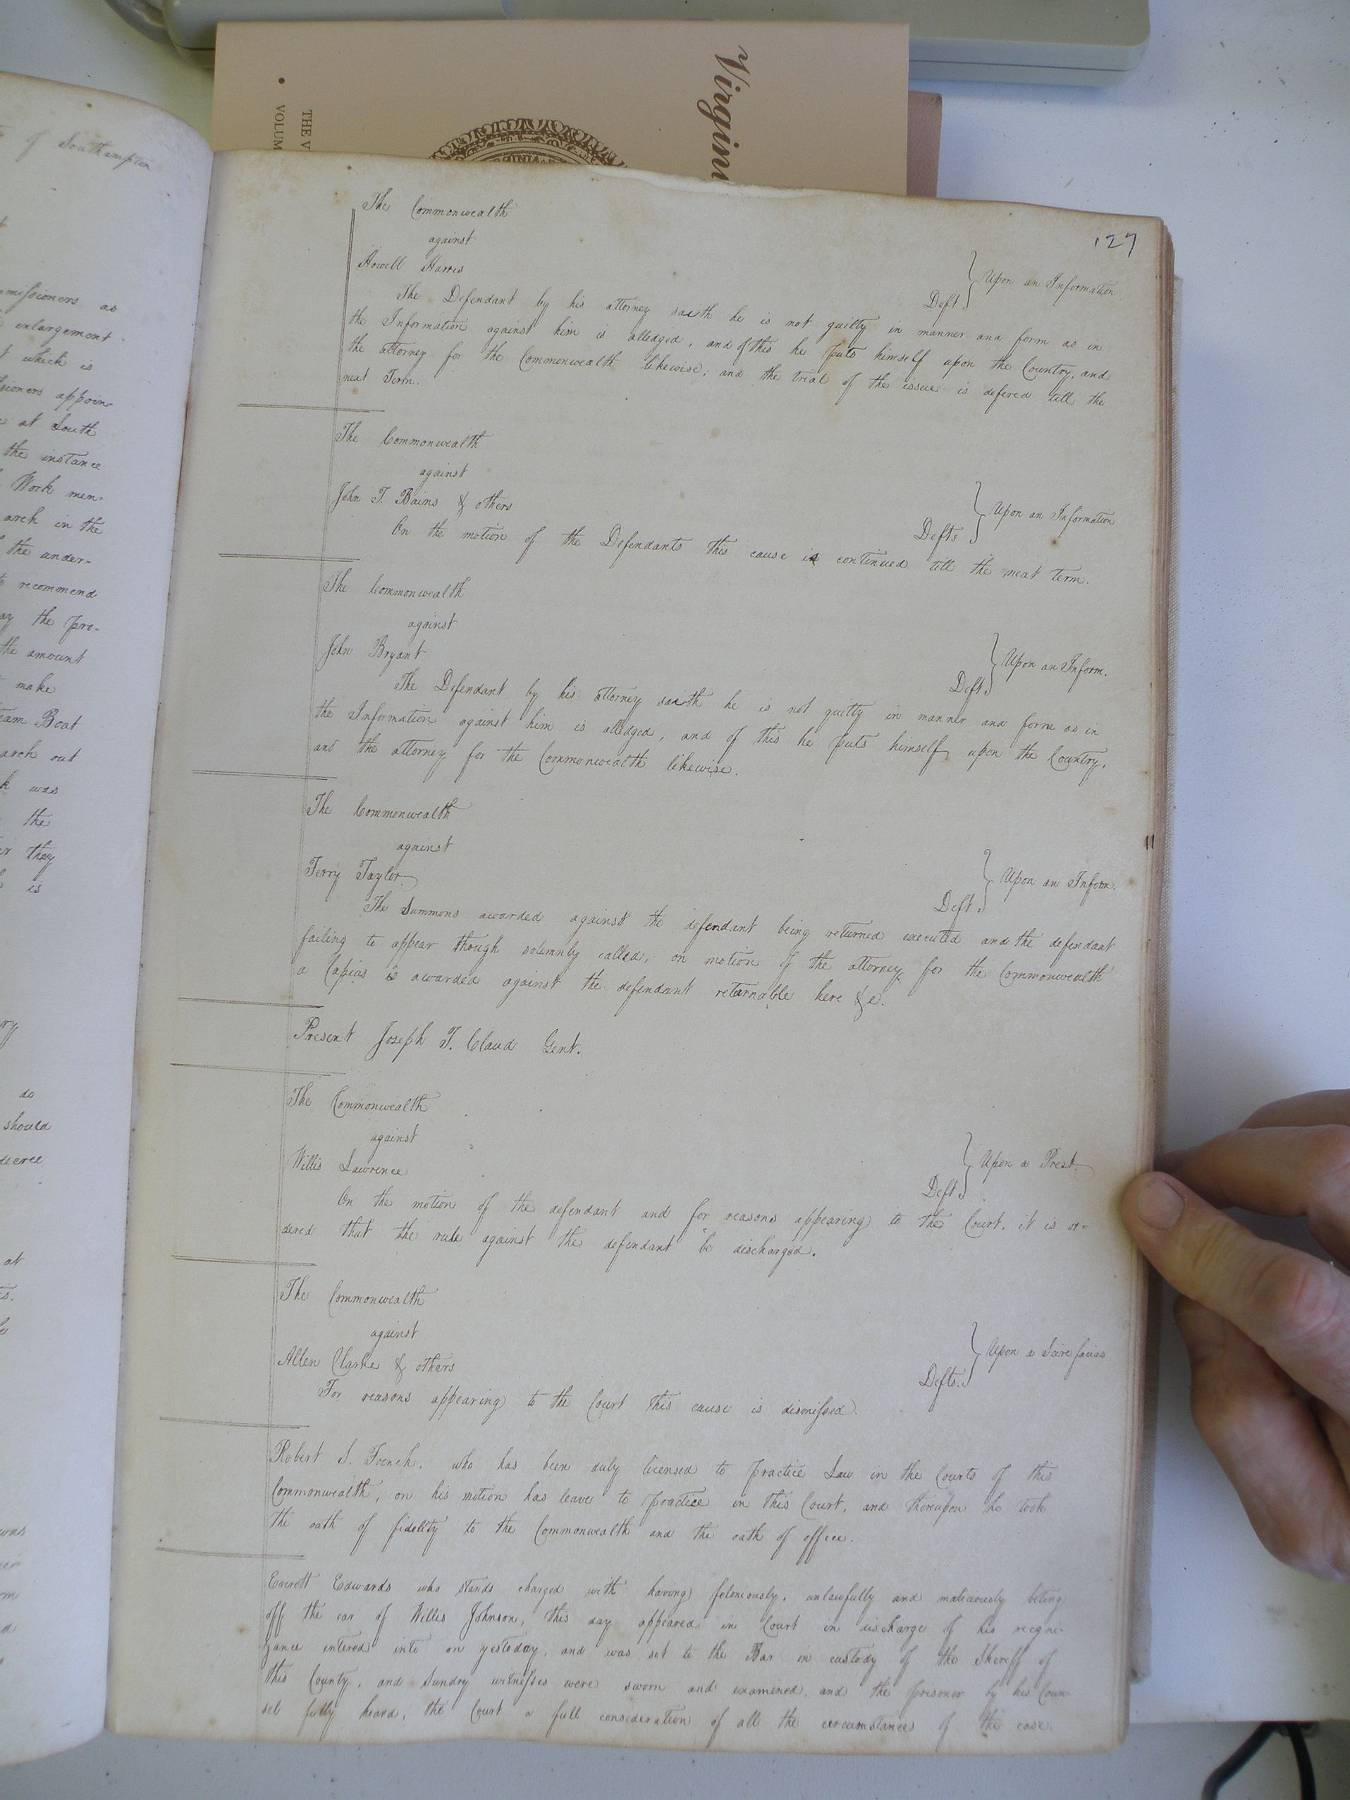 Virgini
THE V
VOLUM
of Southampton
missioners as
enlargement
which is
sioners appoin-
at South
the instance
Work men-
arch in the
the under-
recommend
the pre-
the amount
make
eam Boat
arch out
was
the
they
is
do
should
decree
at
was
127
The Commonwealth
against
Howell Harris Deft. } Upon an Information
The Defendant by his attorney saith he is not guilty in manner and form as in
the Information against him is alledged, and of this he puts himself upon the Country, and
the attorney for the Commonwealth likewise; and the trial of the issue is defered till the
next Term.
The Commonwealth
against
John T. Bains & others Defts } Upon an Information
On the motion of the Defendants this cause is continued till the next term.
The Commonwealth
against
John Bryant Deft. } Upon an Inform.
The Defendant by his attorney saith he is not guilty in manner and form as in
the Information against him is alledged, and of this he puts himself upon the Country,
and the attorney for the Commonwealth likewise.
The Commonwealth
against
Terry Taylor Deft. } Upon an Inform.
The Summons awarded against the defendant being returned executed and the defendant
failing to appear though solemnly called, on motion of the attorney for the Commonwealth
a Capias is awarded against the defendant returnable here &c.
Present Joseph T. Claud Gent.
The Commonwealth
against
Willis Lawrence Deft. } Upon a Prest.
On the motion of the defendant and for reasons appearing to the Court, it is or-
dered that the rule against the defendant be discharged.
The Commonwealth
against
Allen Clarke & others Defts. } Upon a Scire facias
For reasons appearing to the Court this cause is dismissed.
Robert S. French, who has been duly licensed to practice Law in the Courts of this
Commonwealth, on his motion has leave to practice in this Court, and thereupon he took
the oath of fidelity to the Commonwealth and the oath of office.
Everett Edwards who stands charged with having feloniously, unlawfully and maliciously biting
off the ear of Willis Johnson, this day appeared in Court in discharge of his recogni-
zance entered into on yesteday, and was set to the Bar in custody of the Sheriff of
this County, and Sundry witnesses were sworn and examined, and the prisoner by his Coun-
sel fully heard, the Court a full consideration of all the circumstances of the case,